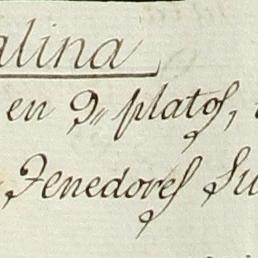 alina
en 9,, platos,
Tenedores Su